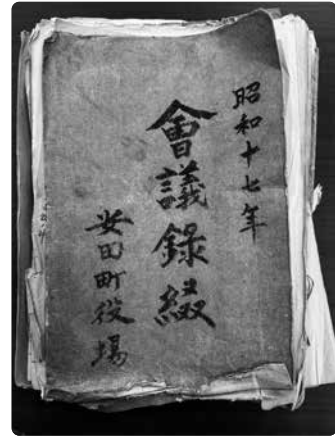 昭和十七年
會議録綴
安田町役場